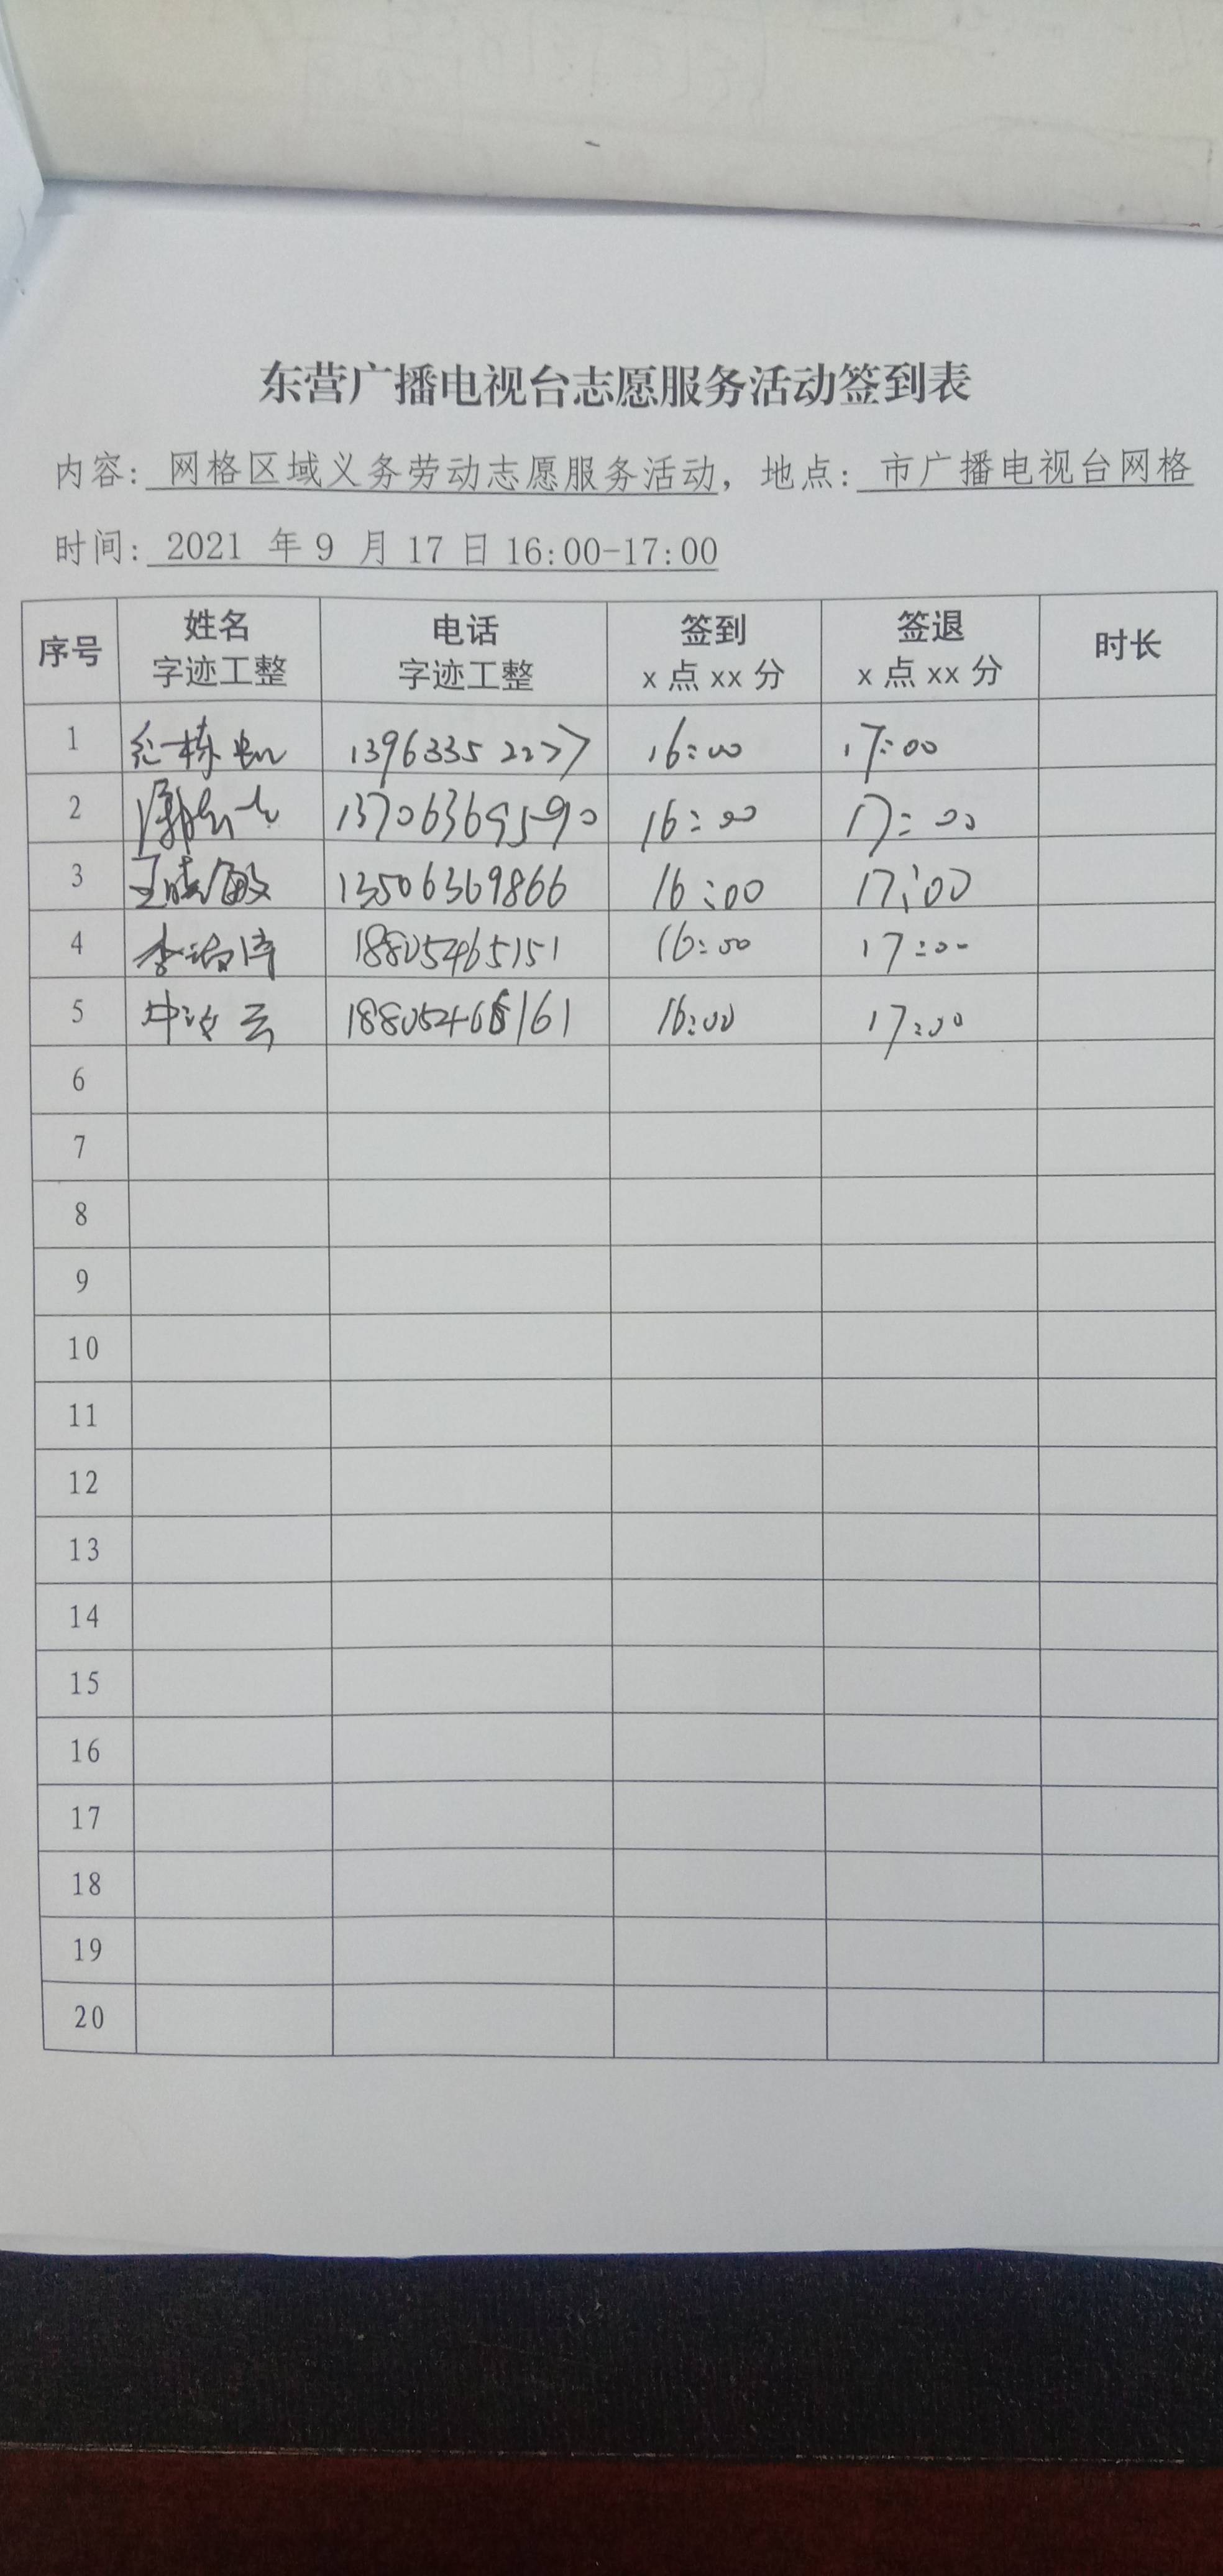 东营广播电视台志愿服务活动签到表
内容: 网格区域义务劳动志愿服务活动, 地点: 市广播电视台网格
时间: 2021 年 9 月 17 日 16:00-17:00
序号 姓名 字迹工整 电话 字迹工整 签到 x 点 xx 分 签退 x 点 xx 分 时长
1 13963352277 16:00 17:00
2 13706369590 16:00 17:00
3 王晓敏 13506369866 16:00 17:00
4 李 18805465151 16:00 17:00
5 16:00 17:00
6
7
8
9
10
11
12
13
14
15
16
17
18
19
20